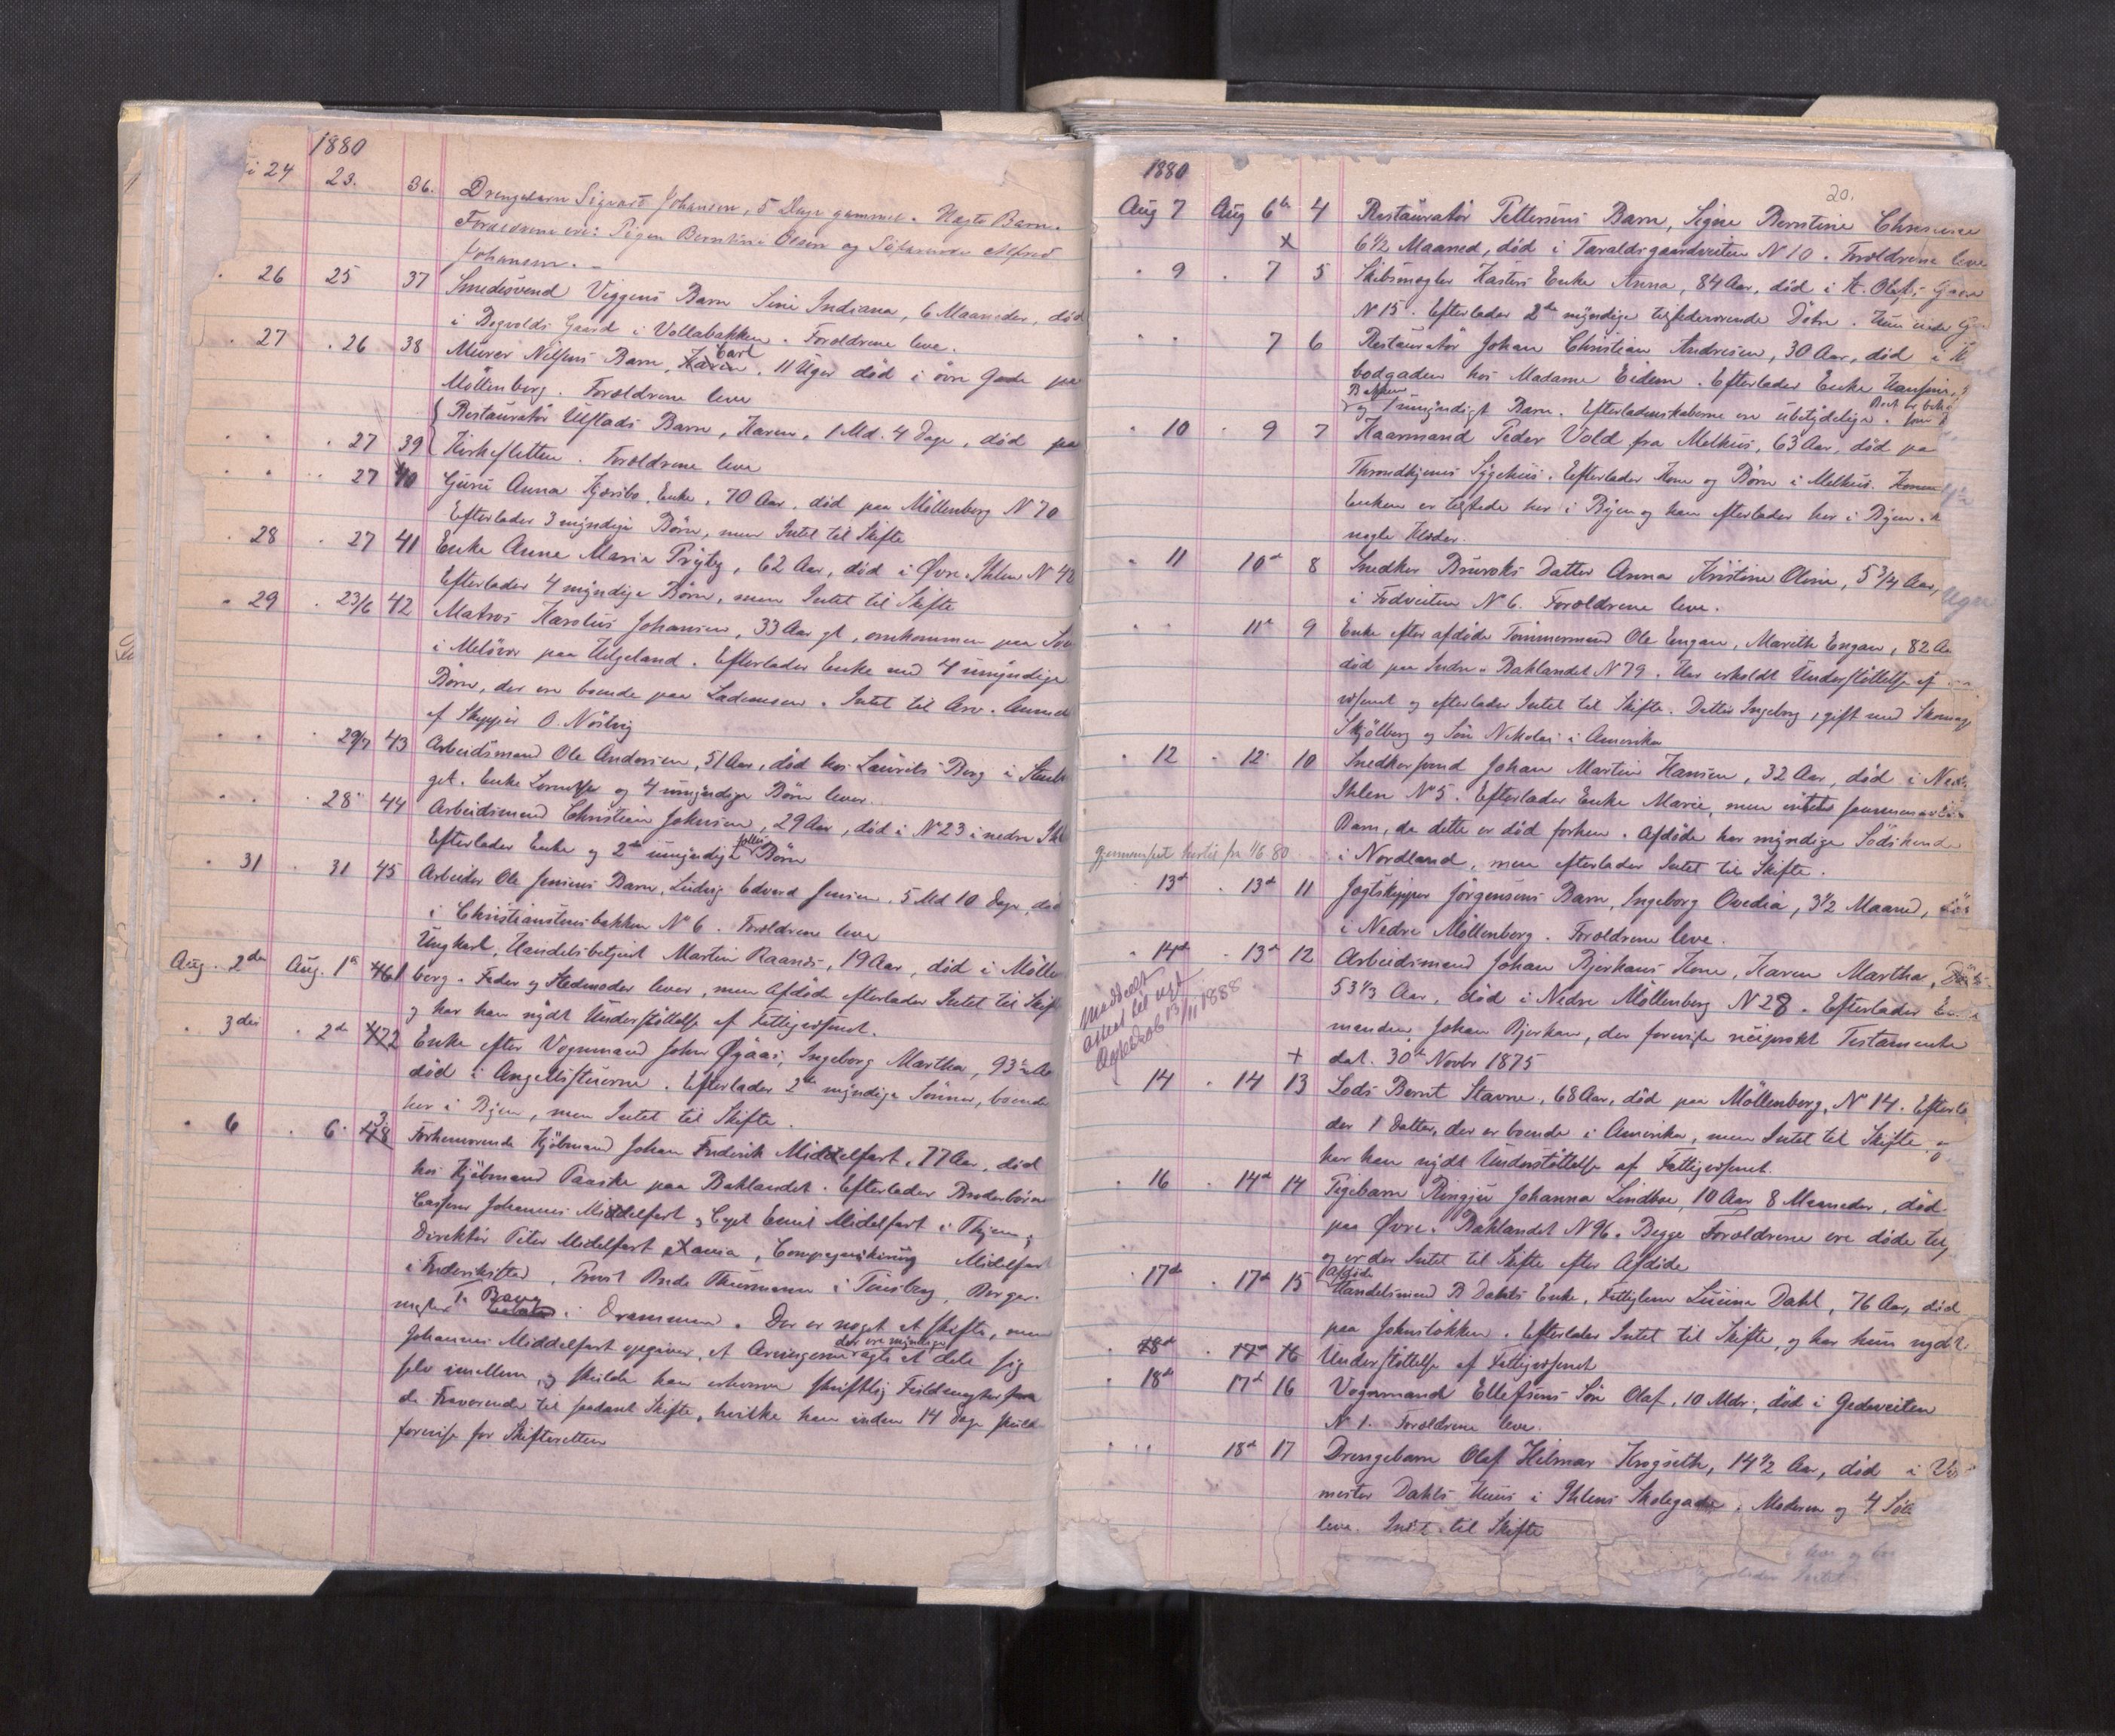 1880
24 23. 36. Drengebarn Sigvart Johansen, 5 Dage gammel. Uægte Barn.
Forældrene ere: Pigen Berntine Olsen og Sømand Alfred
Johansen.
26 25 37 Smedesvend Viggens Barn Sine Indiana, 6 Maaneder, død
i Bogvolds Gaard i Vollabakken. Forældrene leve.
27 26 38 Murer Nilsens Barn, Karen Carl, 11 Uger død i øvre Gade paa
Möllenberg. Forældrene leve
Restauratør Ulstads Barn, Karen, 1 Md. 4 Dage, død paa
27 39 Kirkesletten. Forældrene leve
27 40 Guru Anna Kjøsvibo, Enke, 70 Aar, død paa Möllenberg N 70
Efterlader 3 myndige Börn, men Intet til Skifte
28 27 41 Enke Anne Maria Prytz, 62 Aar, död i Øvre Ihlen N 42
Efterlader 4 myndige Börn, men Intet til Skifte
29 23/6 42 Matros Karolius Johansen, 33 Aar gl, omkommen paa
i Melövær paa Helgeland. Efterlader Enke med 4 umyndige
Börn, der ere boende paa Lademoen. Intet til Arv. Anmeldt
af Skipper O. Nöstvig
29/7 43 Arbeidsmand Ole Andersen, 51 Aar, död hos Laurits Berg i
get. Enke Lornitse og 4 umyndige Börn lever.
28 44 Arbeidsmand Christian Johnsen, 29 Aar, död i N 23 i nedre Ihle
Efterlader Enke og 2de umyndige fælles Börn
31 31 45 Arbeider Ole Jensens Barn, Ludvig Edvard Jensen, 5 Md 10 Dage, död
i Christianstensbakken No 6. Forældrene leve
Ungkarl, Handelsbetjent Martin Raanes, 19 Aar, död i Möllen
Aug. 2den Aug. 1st 46 1 berg. Fader og Stedmoder lever, men Afdöde efterlader Intet til Skifte
og har han nydt Understöttelse af Fattigvæsenet.
3die 2den 47 2 Enke efter Vognmand John Øyaas, Ingeborg Martha, 93 Aar
död i Angellstuerne. Efterlader 2de myndige Sönner, boende
her i Byen, men Intet til Skifte.
6 6 48 3 Forhenværende Kjöbmand Johan Frederik Middelfart, 77 Aar, död
hos Kjöbmand Paaske paa Baklandet. Efterlader Broderbörn
Casserer Johannes Middelfart, Capt Emil Midelfart i Thjem,
Direktör Peter Midelfart Xania, Compagnikirurg Midelfart
i Frederikstad, Provst Thurmann i Tönsberg, Borger-
mester i Drammen. Der er noget at skifte, men
Johannes Middelfart opgiver, at Arvingerne der ere myndige agte at dele sig
selv imellem, og skulde han erhverve skriftlig Fuldmagter fra
de Fraværende til saadant Skifte, hvilke han inden 14 Dage skulde
forevise for Skifteretten
1880
20.
Aug 7 Aug 6te 4 Restauratør Pettersens Barn, Signe Berntine Christine
x 6 1/2 Maaned, död i Taraldsgaardveiten N 10. Forældrene leve
9 7 5 Skibsmægler Kastens Enke Anna, 84 Aar, död i St. Olafs Gade
N 15. Efterlader 2de myndige tilstedeværende Dötre.
7 6 Restauratør Johan Christian Andresen, 30 Aar, död i
bodgaden hos Madame Eidem. Efterlader Enke
og 1 umyndigt Barn. Efterladenskaberne ere ubetydelige.
10 9 7 Gaarmand Peder Vold fra Melhus, 63 Aar, död paa
Throndhjems Sygehus. Efterlader Kone og Börn i Melhus. Konen
Enken er tilstede her i Byen og han efterlader her i Byen
nogle Klæder.
11 10de 8 Snedker Bruroks Datter Anna Kristine Oline, 5 3/4 Aar,
i Fodveiten N 6. Forældrene leve.
11te 9 Enke efter afdöde Tömmermand Ole Engan, Marith Engan, 82 Aar
död paa Indre Baklandet N 79. Har erholdt Understöttelse af
væsenet og efterlader Intet til Skifte. Datter Ingeborg, gift med Skomager
Skjölberg og Sön Nikolai i Amerika
12 12 10 Snedkersvend Johan Martin Hansen, 32 Aar, död i Nedre
Ihlen No 5. Efterlader Enke Marie, men intet sammenavlet
Barn, da dette er död forhen. Afdöde har myndige Södskende
i Nordland, men efterlader Intet til Skifte.
13de 13de 11 Jagtskipper Jörgensens Barn, Ingeborg Ovedia, 3 1/2 Maaned, död
i Nedre Möllenberg. Forældrene leve.
14de 13de 12 Arbeidsmand Johan Bjerkans Kone, Karen Martha,
53 1/3 Aar, död i Nedre Möllenberg N 28. Efterlader
manden Johan Bjerkan, der foreviste reciprokt Testamente
+ dat. 30te Novbr 1875
Meddelt
Attest til
13/11 1888
14 14 13 Lods Bernt Stavne, 68 Aar, död paa Möllenberg, No 14. Efterla
der 1 Datter, der er boende i Amerika, men Intet til Skifte, og
har han nydt Understöttelse af Fattigvæsenet.
16 14de 14 Pigebarn Ringju Johanna Lindboe, 10 Aar 8 Maaneder, död
paa Øvre Baklandet N 96. Begge Forældrene ere döde
og er der Intet til Skifte efter Afdöde
17de 17de 15 Afdöde Handelsmand B Dahls Enke, Fattiglem Lucina Dahl, 76 Aar, död
paa Johnstokken. Efterlader Intet til Skifte, og har hun nydt
18de 17de 16 Understöttelse af Fattigvæsenet
18de 17de 16 Vognmand Ellefsens Sön Olaf, 10 Mdr., död i Gedeveiten
N 1. Forældrene leve.
18de 17 Drengebarn Olaf Hilmar Krogseth, 14 1/2 Aar, död i
mester Dahls Huus i Ihlens Skolegade. Moderen og 4 Söd
leve. Intet til Skifte